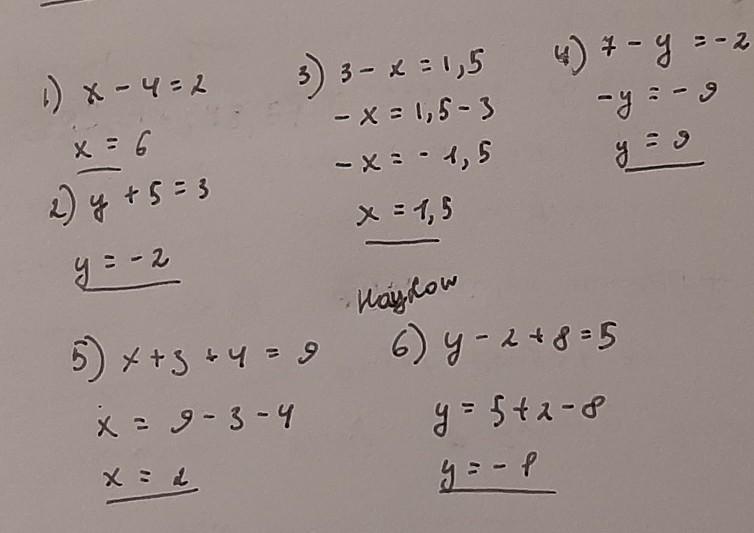 1) x - 4 = 2
x = 6
2) y + 5 = 3
y = -2
3) 3 - x = 1,5
-x = 1,5 - 3
-x = -1,5
x = 1,5
4) 7 - y = -2
-y = -9
y = 9
5) x + 3 + 4 = 9
x = 9 - 3 - 4
x = 2
6) y - 2 + 8 = 5
y = 5 + 2 - 8
y = -1